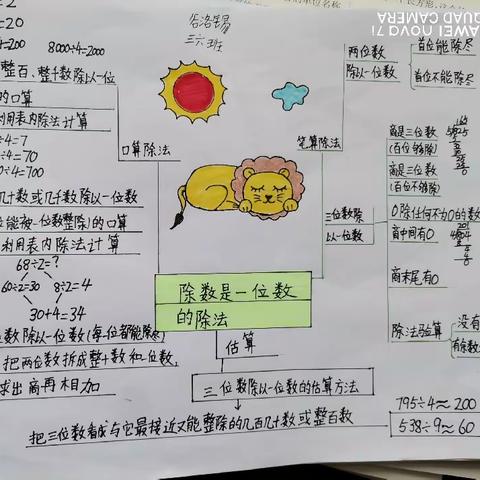 =2
=20
=200 8000÷4=2000
整百、整十数除以一位
的口算
利用表内除法计算
÷4=7
÷4=70
0÷4=700
几十数或几千数除以一位数
位能被一位数整除)的口算
利用表内除法计算
68÷2=?
60÷2=30 8÷2=4
30+4=34
位数除以一位数(每一位都能除尽)
把两位数拆成整十数和一位数,
求出商再相加
三六班
口算除法
笔算除法
两位数
除以一位数
首位能除尽
首位不能除尽
三位数除
以一位数
商是三位数
(百位够除)
商是三位数
(百位不够除)
0除任何不为0的数
商中间有0
商末尾有0
除法验算
没有
有余数
除数是一位数
的除法
估算
三位数除以一位数的估算方法
把三位数看成与它最接近又能整除的几百几十数或整百数
795÷4≈200
538÷9≈60
HUAWEI nova 7i
QUAD CAMERA